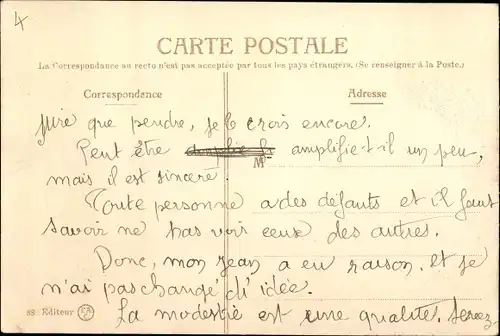 4
CARTE POSTALE
La Correspondance au recto n'est pas acceptée par tous les pays étrangers. (Se renseigner à la Poste.)
Correspondance
Adresse
que pendre, je le crois encore.
Peut être amplifie-t-il un peu,
M
mais il est sincère.
Toute personne a des défauts et il faut
savoir ne pas voir ceux des autres.
Donc, mon Jean a eu raison. et je
n'ai pas changé d'idée.
88 Editeur
La modestie est une qualité. Serez